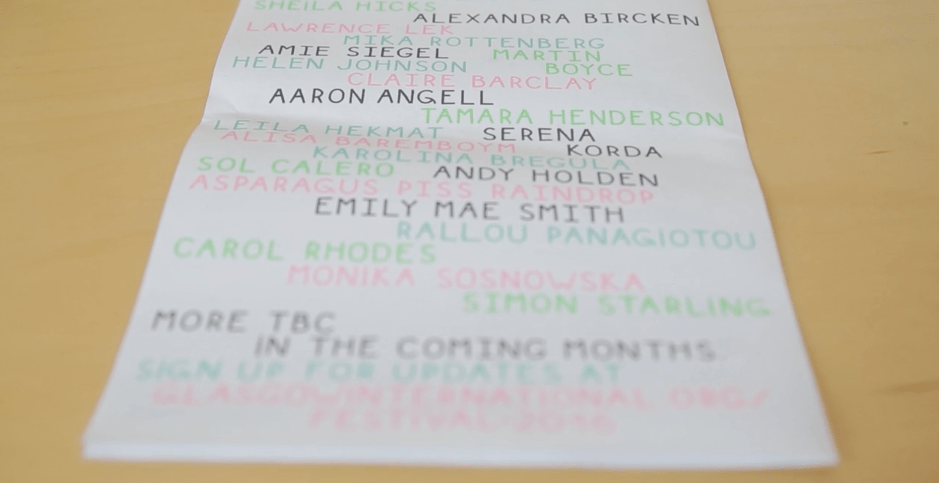 SHEILA HICKS
ALEXANDRA BIRCKEN
LAWRENCE LEK
MIKA ROTTENBERG
AMIE SIEGEL MARTIN
HELEN JOHNSON BOYCE
CLAIRE BARCLAY
AARON ANGELL
TAMARA HENDERSON
LEILA HEKMAT SERENA
ALISA BAREMBOYM KORDA
KAROLINA BREGULA
SOL CALERO ANDY HOLDEN
ASPARAGUS PISS RAINDROP
EMILY MAE SMITH
RALLOU PANAGIOTOU
CAROL RHODES
MONIKA SOSNOWSKA
SIMON STARLING
MORE TBC
IN THE COMING MONTHS.
SIGN UP FOR UPDATES AT
GLASGOWINTERNATIONAL.ORG/
FESTIVAL-2016